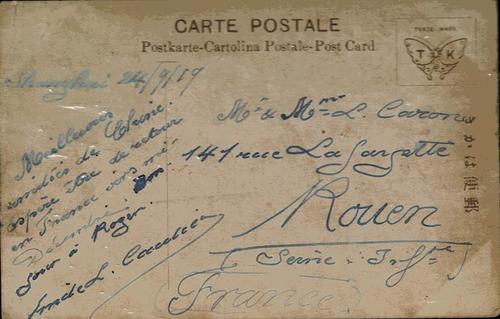 CARTE POSTALE
Postkarte-Cartolina Postale-Post Card
TRADE MARK
T K
Shanghai 24/9/19
Meilleures
amitiés de Chine.
espère être de retour
en France vers mi-
Décembre.
Mr & Mme L. Caron
141 rue Lafayette
Rouen
(Seine-Infre)
France
きかは便郵